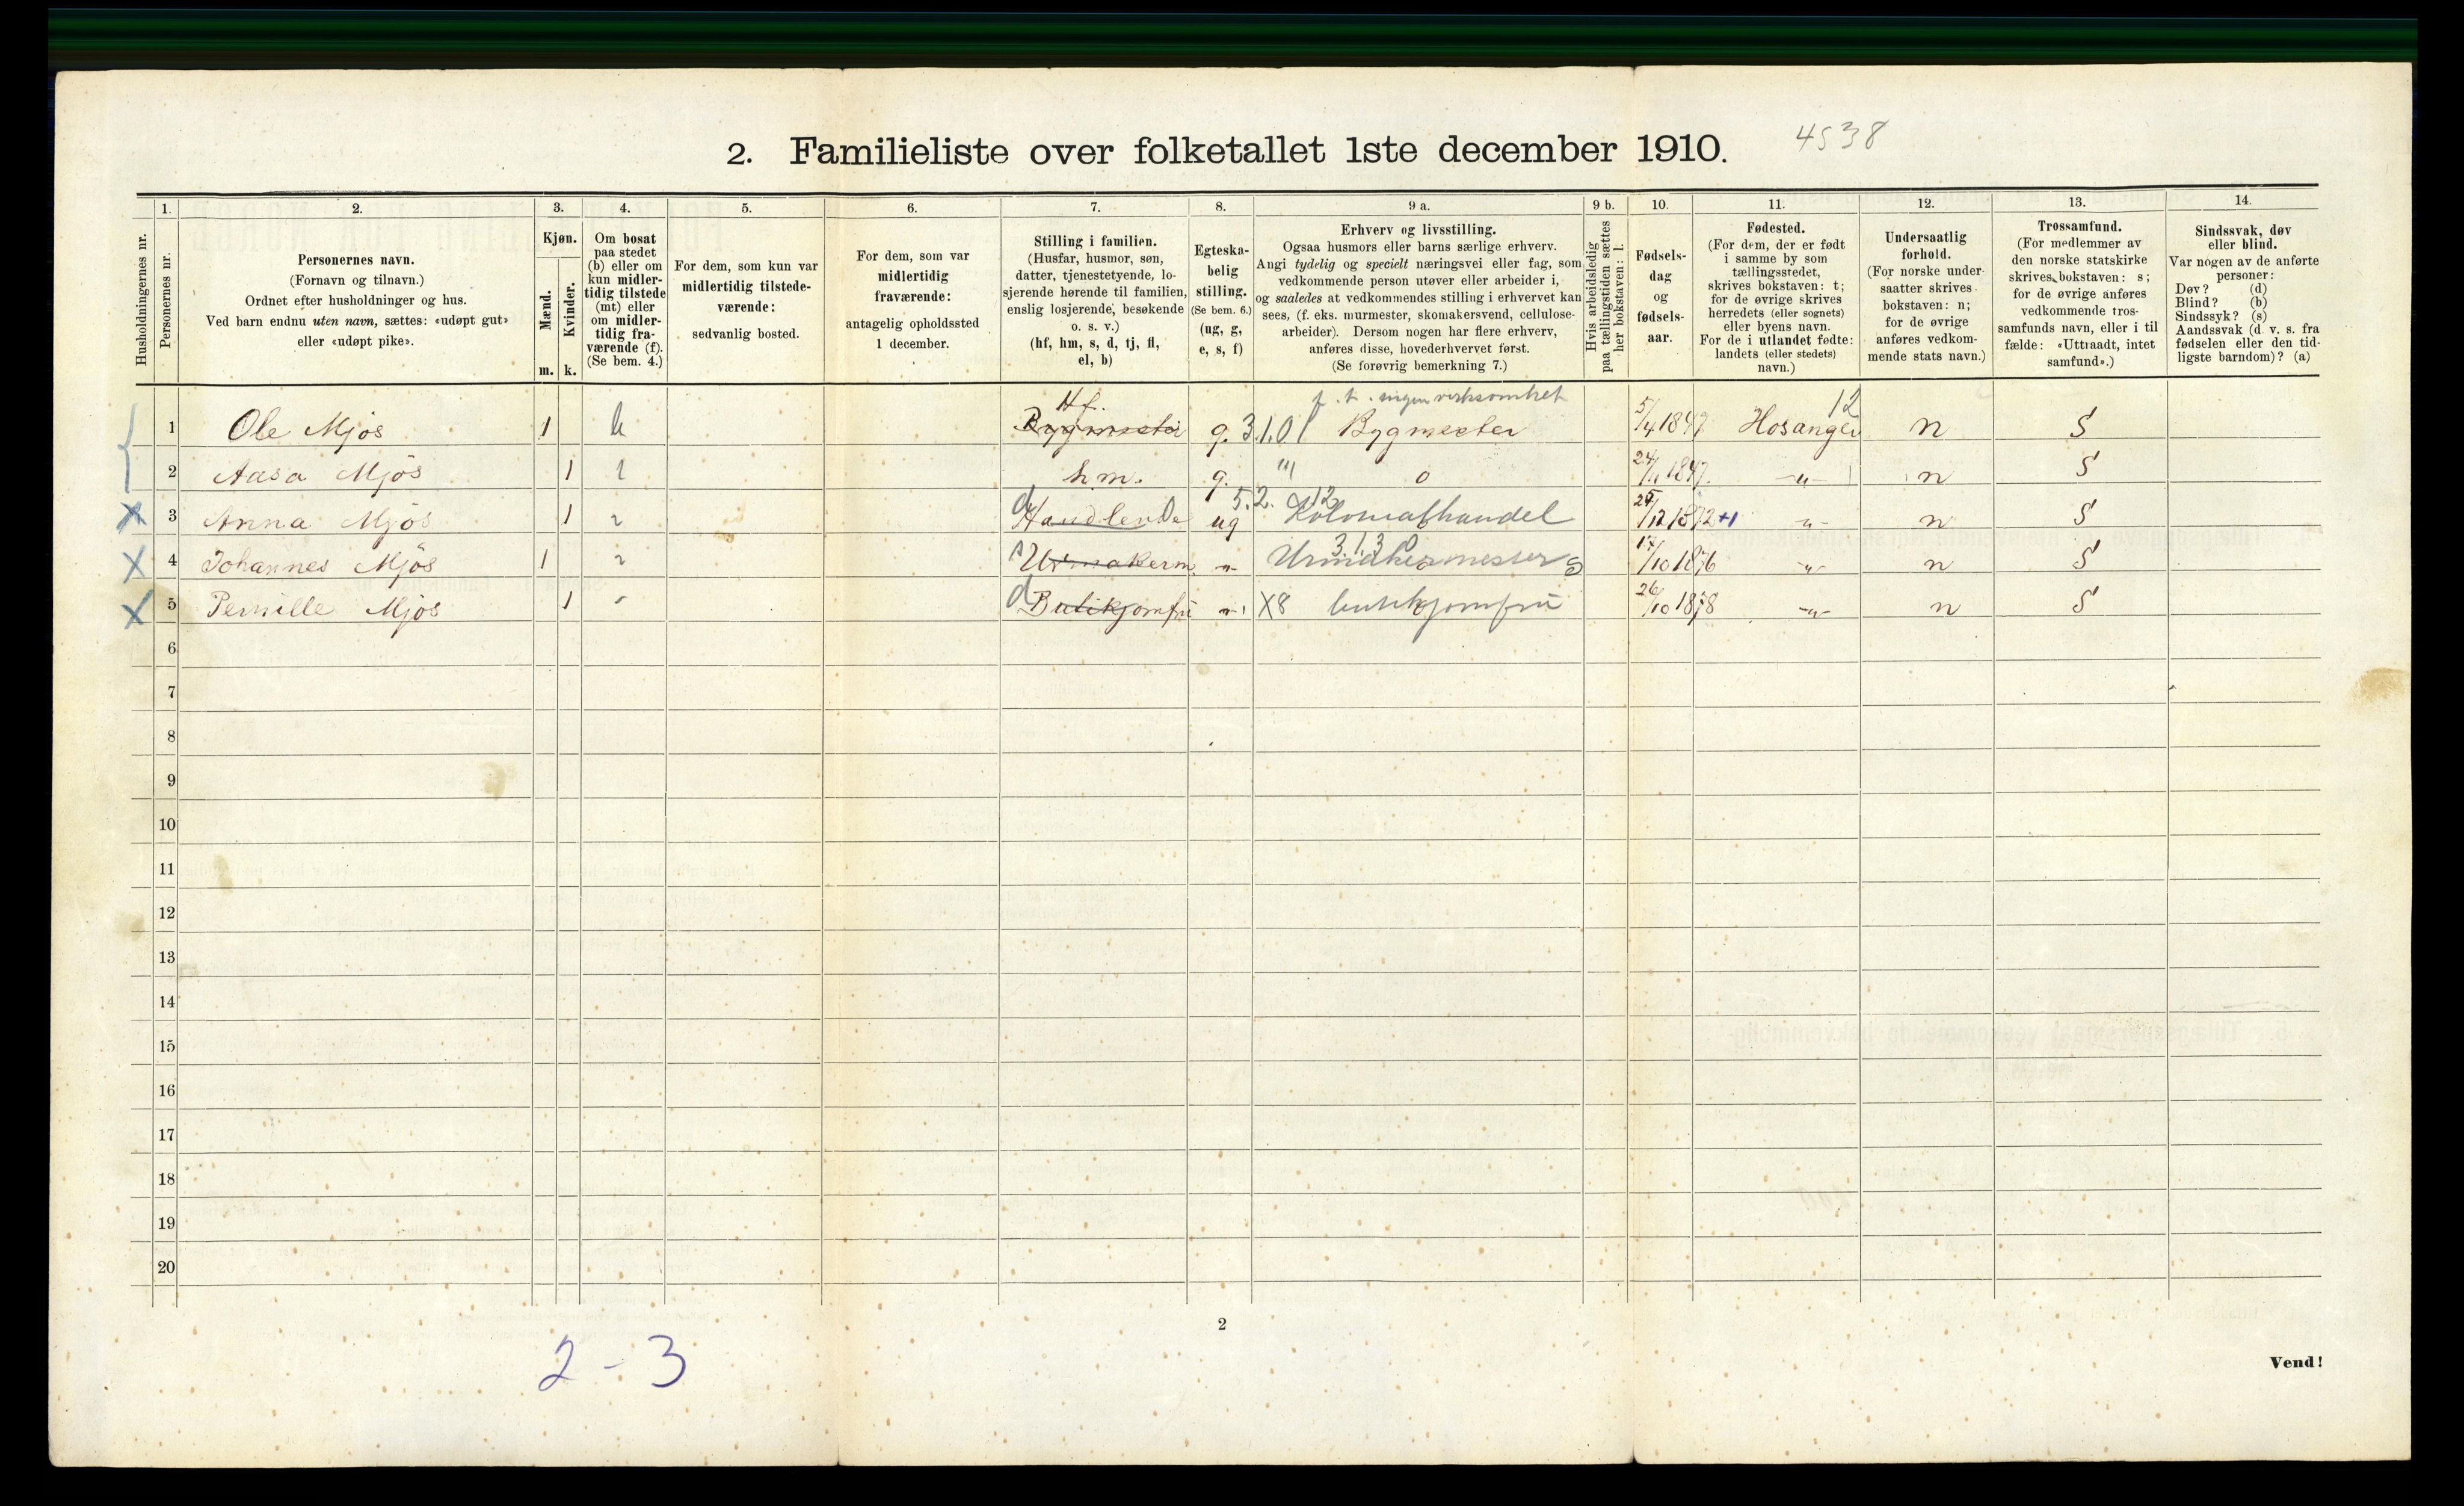 2. Familieliste over folketallet 1ste december 1910.
4538
Husholdningernes nr.
1.
Personernes nr.
2.
Personernes navn.
(Fornavn og tilnavn.)
Ordnet efter husholdninger og hus.
Ved barn endnu uten navn, sættes: «udøpt gut»
eller «udøpt pike».
3.
Kjøn.
Mænd.
Kvinder.
m. k.
4.
Om bosat
paa stedet
(b) eller om
kun midler-
tidig tilstede
(mt) eller
om midler-
tidig fra-
værende (f).
(Se bem. 4.)
5.
For dem, som kun var
midlertidig tilstede-
værende:
sedvanlig bosted.
6.
For dem, som var
midlertidig
fraværende:
antagelig opholdssted
1 december.
7.
Stilling i familien.
(Husfar, husmor, søn,
datter, tjenestetyende, lo-
sjerende hørende til familien,
enslig losjerende, besøkende
o. s. v.)
(hf, hm, s, d, tj, fl,
el, b)
8.
Egteska-
belig
stilling.
(Se bem. 6.)
(ug, g,
e, s, f)
9 a.
Erhverv og livsstilling.
Ogsaa husmors eller barns særlige erhverv.
Angi tydelig og specielt næringsvei eller fag, som
vedkommende person utøver eller arbeider i,
og saaledes at vedkommendes stilling i erhvervet kan
sees, (f. eks. murmester, skomakersvend, cellulose-
arbeider). Dersom nogen har flere erhverv,
anføres disse, hovederhvervet først.
(Se forøvrig bemerkning 7.)
9 b.
Hvis arbeidsledig
paa tællingstiden sættes
her bokstaven: l.
10.
Fødsels-
dag
og
fødsels-
aar.
11.
Fødested.
(For dem, der er født
i samme by som
tællingsstedet,
skrives bokstaven: t;
for de øvrige skrives
herredets (eller sognets)
eller byens navn.
For de i utlandet fødte:
landets (eller stedets)
navn.)
12.
Undersaatlig
forhold.
(For norske under-
saatter skrives
bokstaven: n;
for de øvrige
anføres vedkom-
mende stats navn.)
13.
Trossamfund.
(For medlemmer av
den norske statskirke
skrives bokstaven: s;
for de øvrige anføres
vedkommende tros-
samfunds navn, eller i til
fælde: «Uttraadt, intet
samfund».)
14.
Sindssvak, døv
eller blind.
Var nogen av de anførte
personer:
Døv? (d)
Blind? (b)
Sindssyk? (s)
Aandssvak (d. v. s. fra
fødselen eller den tid-
ligste barndom)? (a)
Hf. p. t. ingen virksomhet 12
1 Ole Mjøs 1 b Bygmester g. 3.1.0 1 Bygmester 5/4 1847 Hosanger n S
2 Aasa Mjøs 1 hm. g. "' o 24/11 1847. -"- n S
5.2. 12
3 Anna Mjøs 1 d Handlende ug Kolonialhandel 25/12 1872 +1 -"- n S
3.1.3 0
4 Johannes Mjøs 1 s Urmakerm. -"- Urmakermester S 17/10 1876 -"- n S
5 Pernille Mjøs 1 d Butikjomfru -"- X8 butikjomfru 26/10 1878 -"- n S
6
7
8
9
10
11
12
13
14
15
16
17
18
19
20
2
2 - 3
Vend!